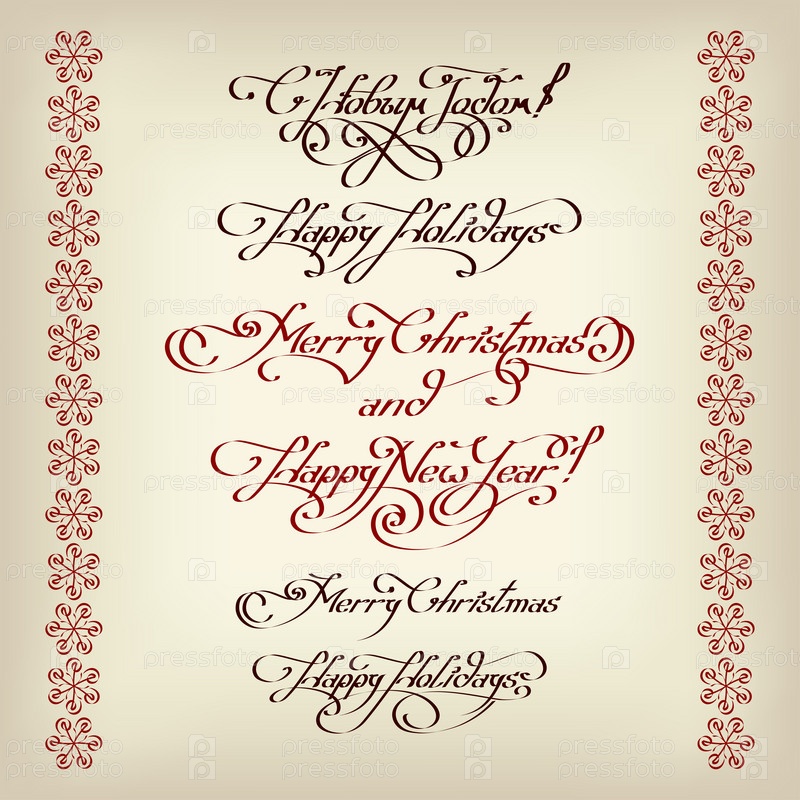 С Новым Годом!
Happy Holidays
Merry Christmas
and
Happy New Year!
Merry Christmas
Happy Holidays
pressfoto